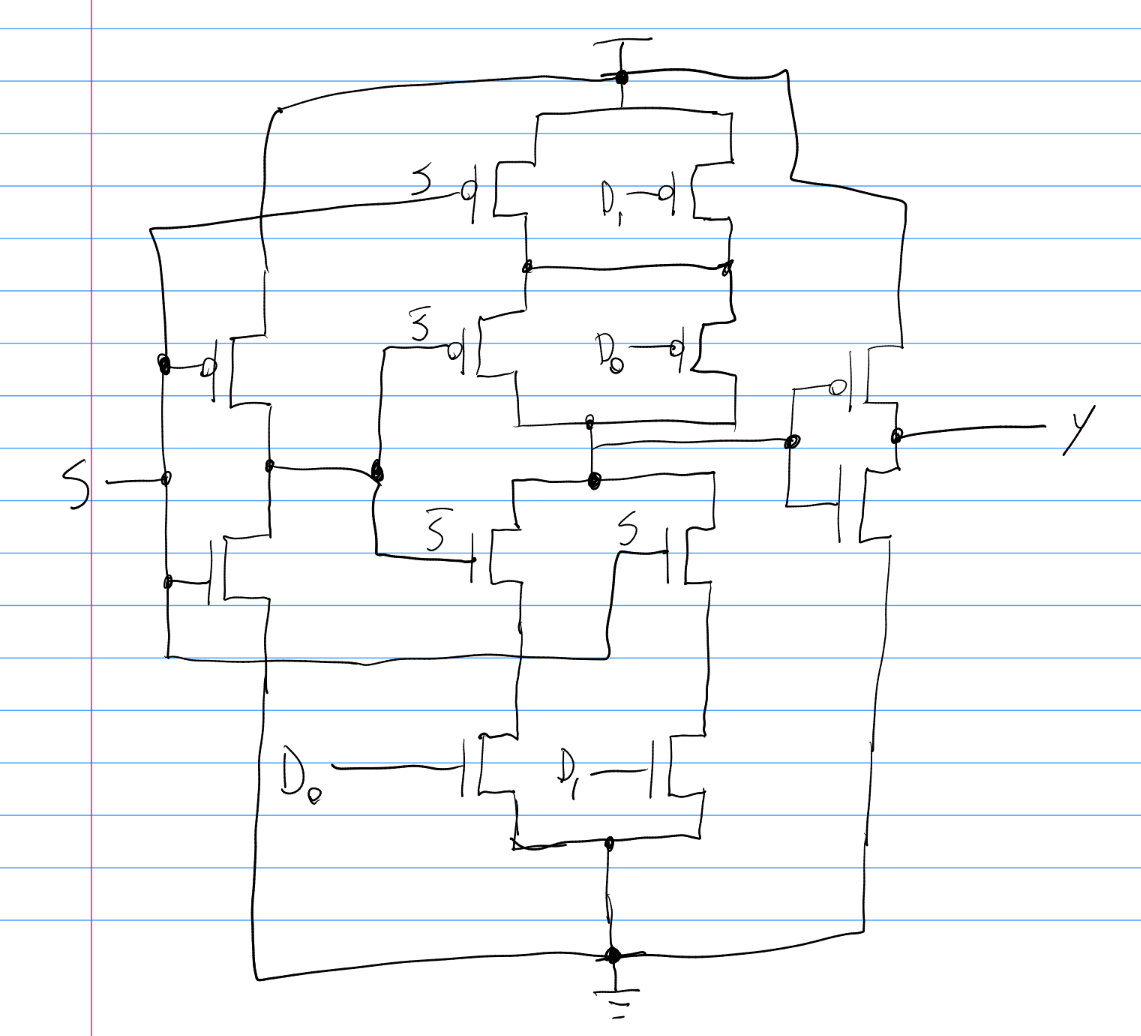 S
D₁
S̅
D₀
S
Y
S̅
S
D₀
D₁